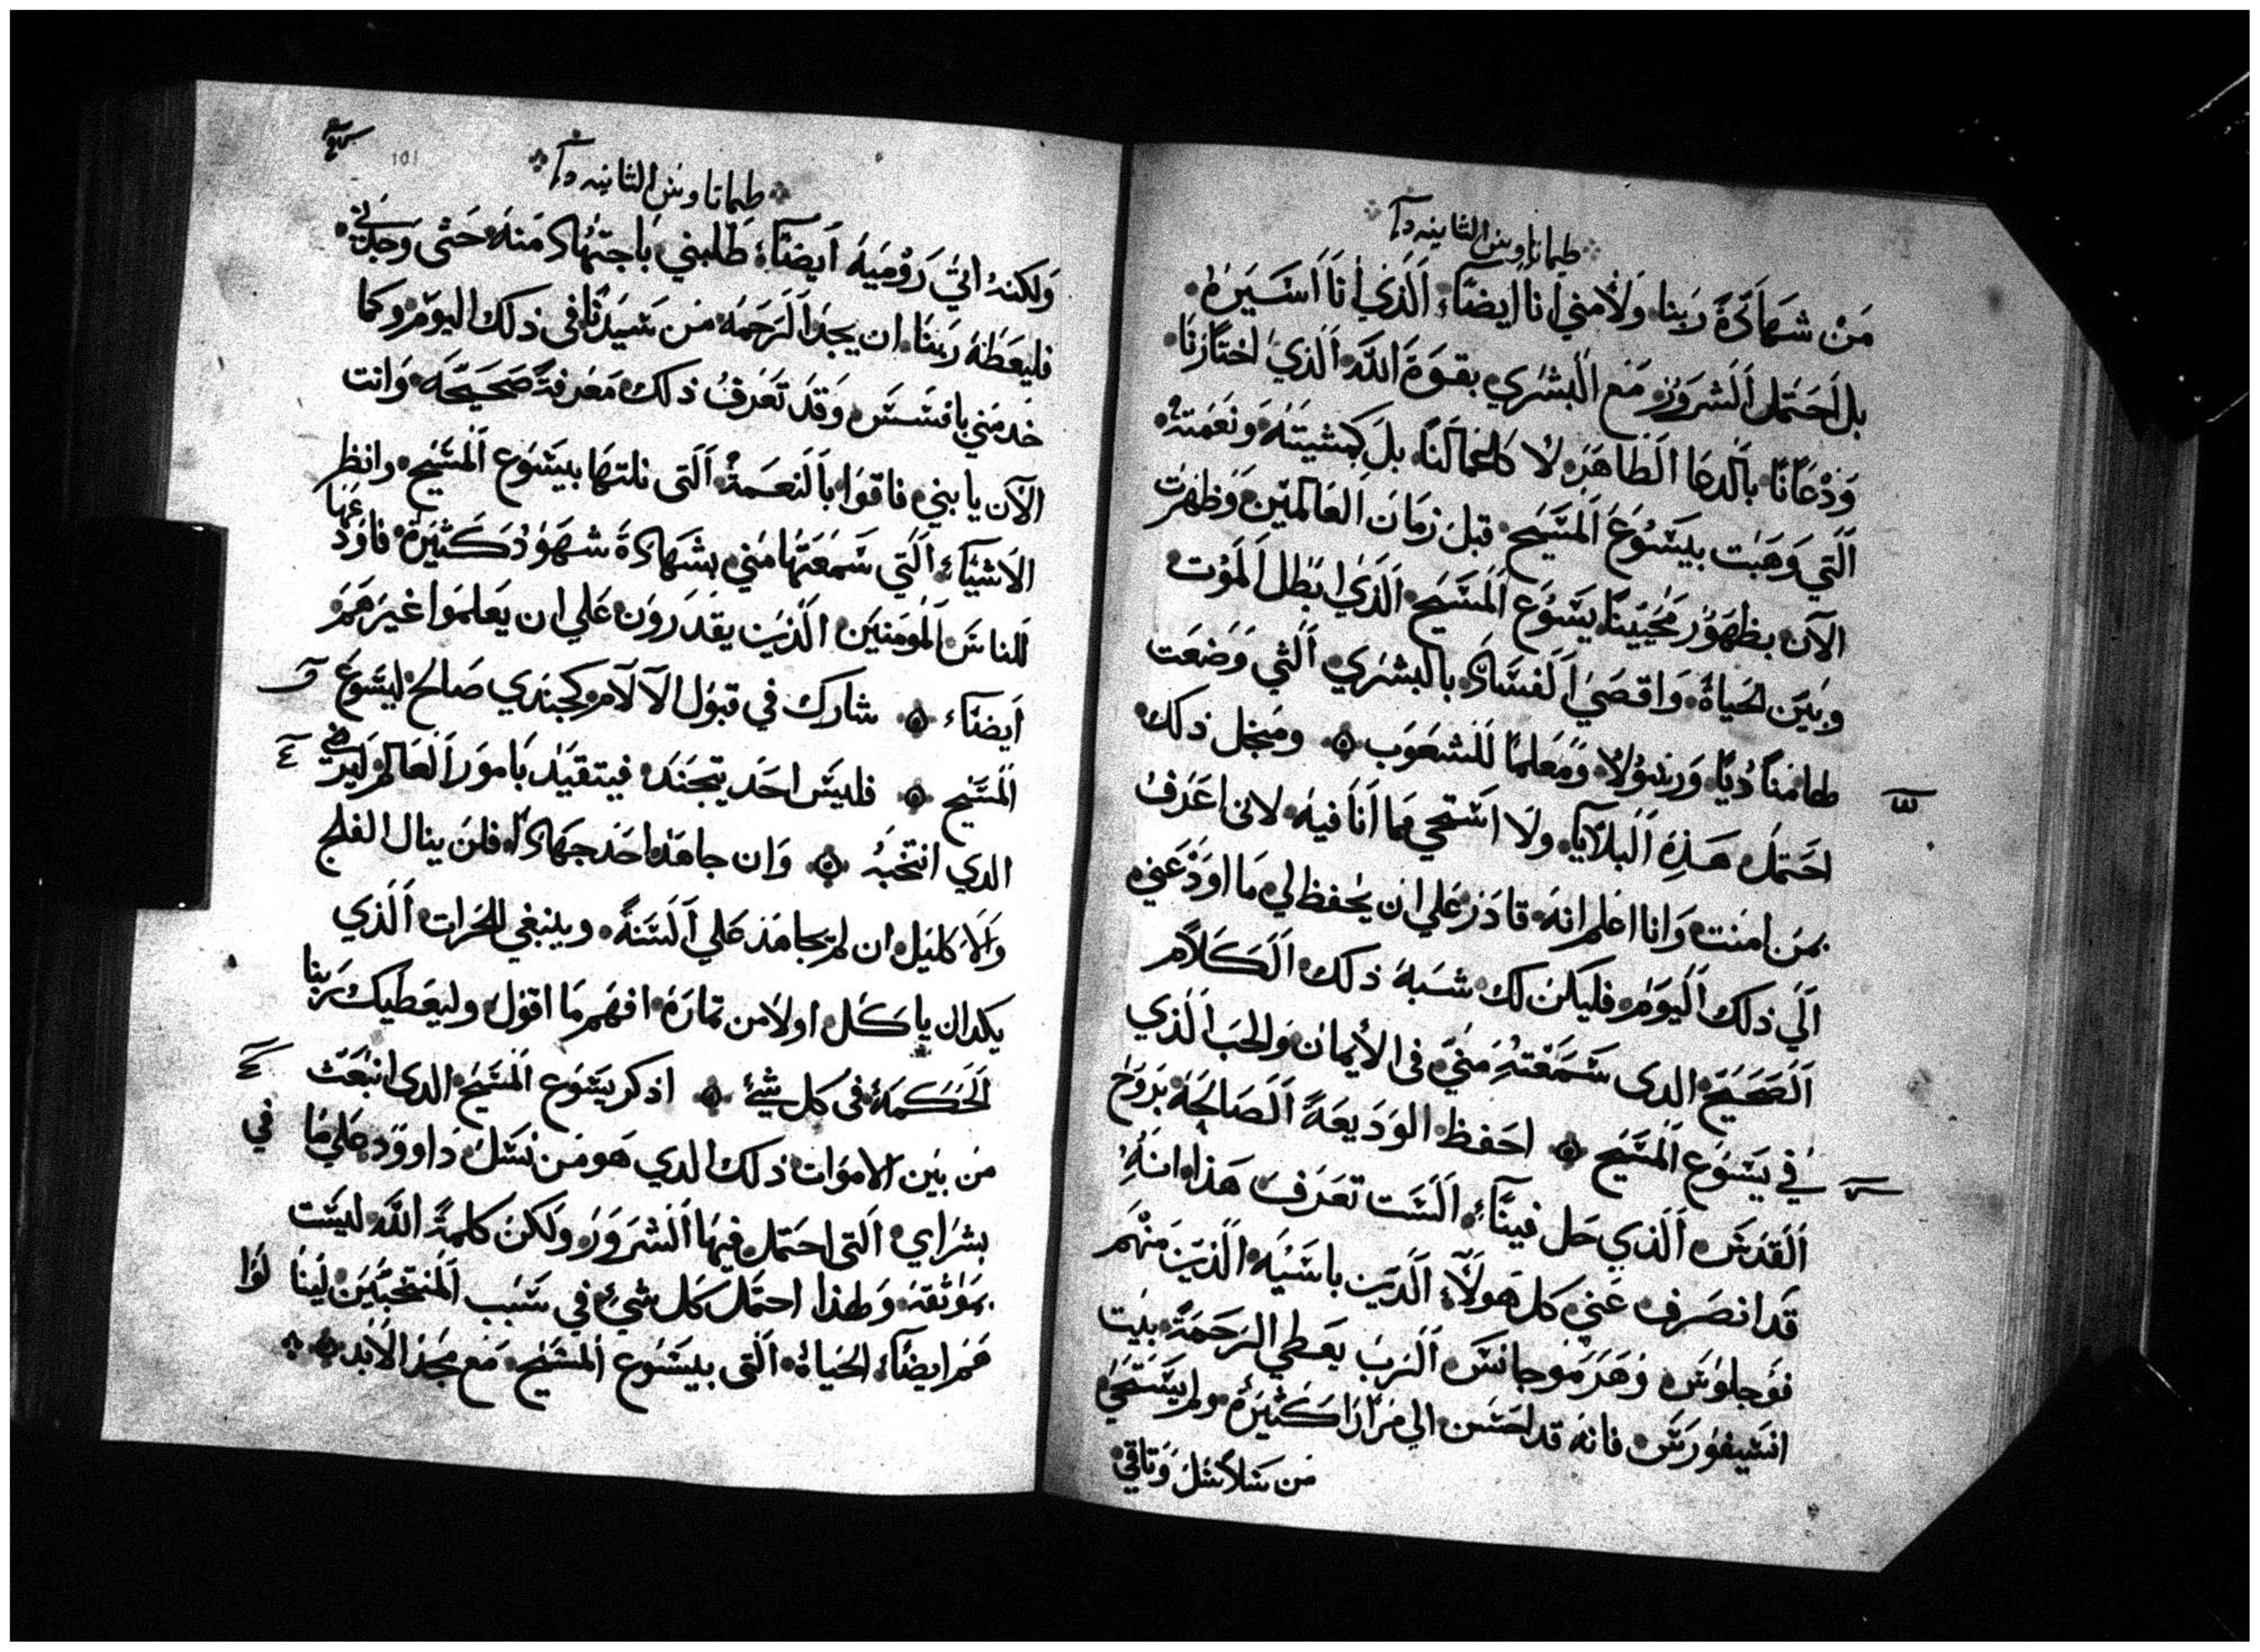 طيماتاوس الثانيه
مَنْ شهَادَةَ رَبنا. وَلاَ مني أنا أيضَاً، الَذي أنَا أسَيَرَهُ.
بل أحَتمَل الَشرَوَرَ مَع البشَري بقوَةَ اللَّه الَذي اختارَنا.
وَدْعَانَا بالَدعَا الَطَاهَرَ لا كاعمَالَنا. بلَ كمشيتَهُ وَنعَمتهُ
الَتي وَهَبَت بيَسَوُعَ الَمسَيَح قبلَ زمَانَ العَالمَيَن وَظهَرَت
الآن بظهَوَرَ مُحَيينَا يَسَوُع المَسَيَح الَذيَ ابَطل الَمَوُت
وبَيَن الحَياةَ، وَاقصَيَ الَفسَادَ بالبشَري الَتي وَضعَت
لها منادُيًا، وَرسَوُلاً، وَمَعَلمًا للَشعَوَب ۞ ومَنجل ذلك
احَتمَل هَذِهِ البلاَيَا، ولا استحي مَما أنَا فيه. لاني اعَرَفُ
بمَن امنت. وَانا اعلم انهَ قادَرَ عَلي ان يحَفظ لي مَا اوَدْعَني
الَي ذلك اليَوَم. فليَكن لك شَبهَ ذلك الَكَلام
الَصَحَيَح الدى سَمَعَتهُ مَني في الأيمان وَالحَب الَذي
في يَسَوُع المَسَيح ۞ احَفظ الوَدَيعَةَ الَصَالحَةَ برَوَحَ
القدَسَ الَذي حَل فينَا، الَسَت تعَرَف هَذا. انهُ
قدَ انصَرَف عَني كل هَولاَء الَذيَن باسَيَه، الَذيَن منهَم
فوَجلوَسَ وَهَرَمَوَجانسَ الَرَبَ يعَطي الرَحَمَةَ بيَت
انسَيفوَرَسَ فانهَ قد احَسَن الي مَرَارَا كثيَرَة. ولم يَسَتحَي
مَن سَلاسَل وَثاقي
طيماتاوس الثانيه
101
وَلكنهُ اتيَ رَوُميَهَ أيضَاً، طلبني باجتهَاد مَنهَ حَتى وَجدَني.
فليعَطهَ رَبنا، ان يجدَ الَرَحَمَة مَن سَيَدَنا في ذلك اليوَم. وكما
خدمَني بافسَسَ، وَقدَ تعَرَفُ ذلك مَعَرفةَ صَحَيَحَة. وَانت
الآن يا بني، فاقوَا بالَنعَمَةَ الَتى نلتهَا بيَسَوُع المَسَيح. وانظر
الاَشيَاء الَتي سَمَعَتهَا مَني بشهَادَةَ شهَوَدُ كَثيَرَة. فاوَدَعَها
للناسَ المَوُمَنيَن الَذيَن يقدَرَوَن عَلي ان يعَلمَوَا غيَرَهَمَ
أيضَاً ۞ شارك في قبوَل الآلام كجندَي صَالح ليَسَوُعَ
المَسَيح ۞ فليَسَ احَدَ يتجندَ فيتقيَدَ بامَوَرَ الَعَالم ليرضي
الدي انتخَبُه ۞ وَان جاهَدَ احَدَ جهَادَا، فلن ينال الفلج
وَالاَكليَل، ان لم يجاهَدَ عَلي الَسَنةَ. وينبغي للحَرَات الَذي
يكد ان ياكَل اولاَ من ثمارَهُ. افهَم مَا اقوَل. وليعَطيك رَبنا
الَحَكمَة فى كل شيَئ ۞ اذكر يَسَوُع المَسَيَح الدى انبعَث
مَن بيَن الاموَات. ذلك الدي هَو مَن نسَلَ دَاووَد عَلي مَا في
بشرَاي التى احَتمَل فيهَا الَشرَوَرَ. وَلكن كلمَةَ اللَّه ليسَت
بمَوَثقهَ. وَلهذا احتمَل كل شيَئ في سَبب المَنتخَبيَن لينَالوَا
هَم ايضَاً، الحَياةَ الَتى بيَسَوُع المَسَيح مَع مَجدَ الاَبد ۞